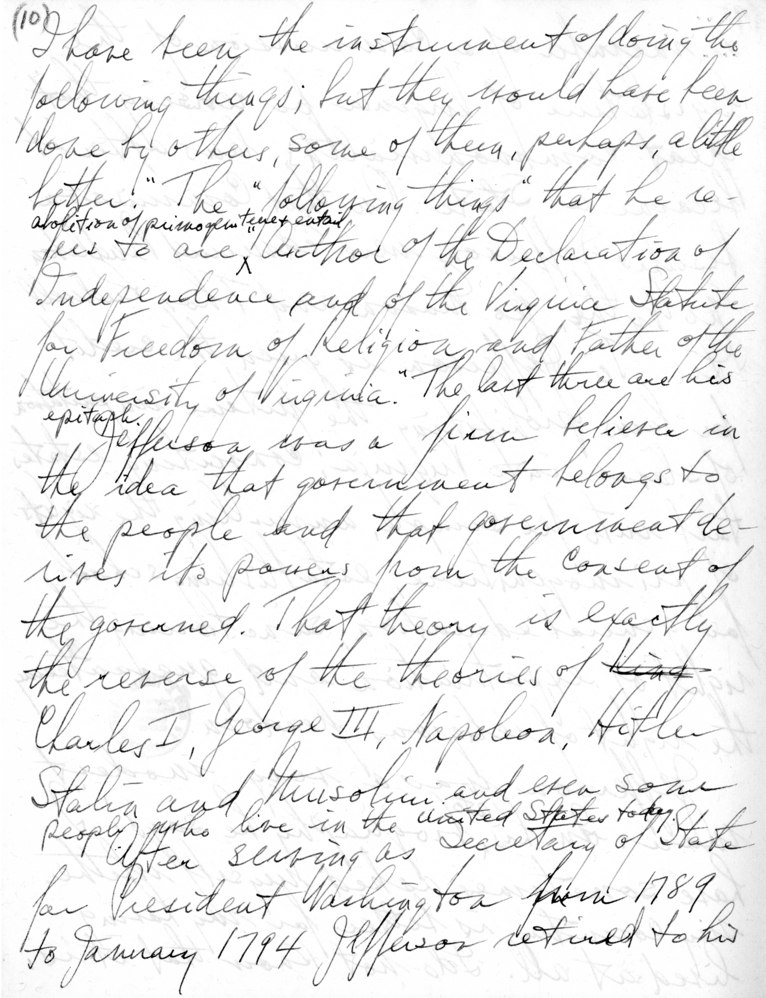 (10)
I have been the instrument of doing the
following things; but they would have been
done by others, some of them, perhaps, a little
better." The "following things" that he re-
abolition of primogeniture & entail
fers to are, "Author of the Declaration of
Independence and of the Virginia Statute
for Freedom of Religion and Father of the
University of Virginia." The last three are his
epitaph.
Jefferson was a firm believer in
the idea that government belongs to
the people and that government de-
rives its powers from the consent of
the governed. That theory is exactly
the reverse of the theories of King
Charles I, George III, Napoleon, Hitler
Stalin and Musolini and even some
people who live in the United States today.
After serving as Secretary of State
for President Washington from 1789
to January 1794 Jefferson retired to his